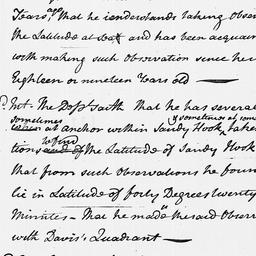 Years, ago that he understands taking Obser
the Latitude at Sea and has been acquain
with making such Observation since he
Eighteen or nineteen Years old
Not. The Dept. saith That he has several
sometimes sometimes at
at Anchor within Sandy Hook taken
to find
tions of the Latitude of Sandy Hook
that from such Observations he foun
lie in Latitude of forty Degrees twenty
Minutes - that he made the said Observ
with Davis's Quadrant